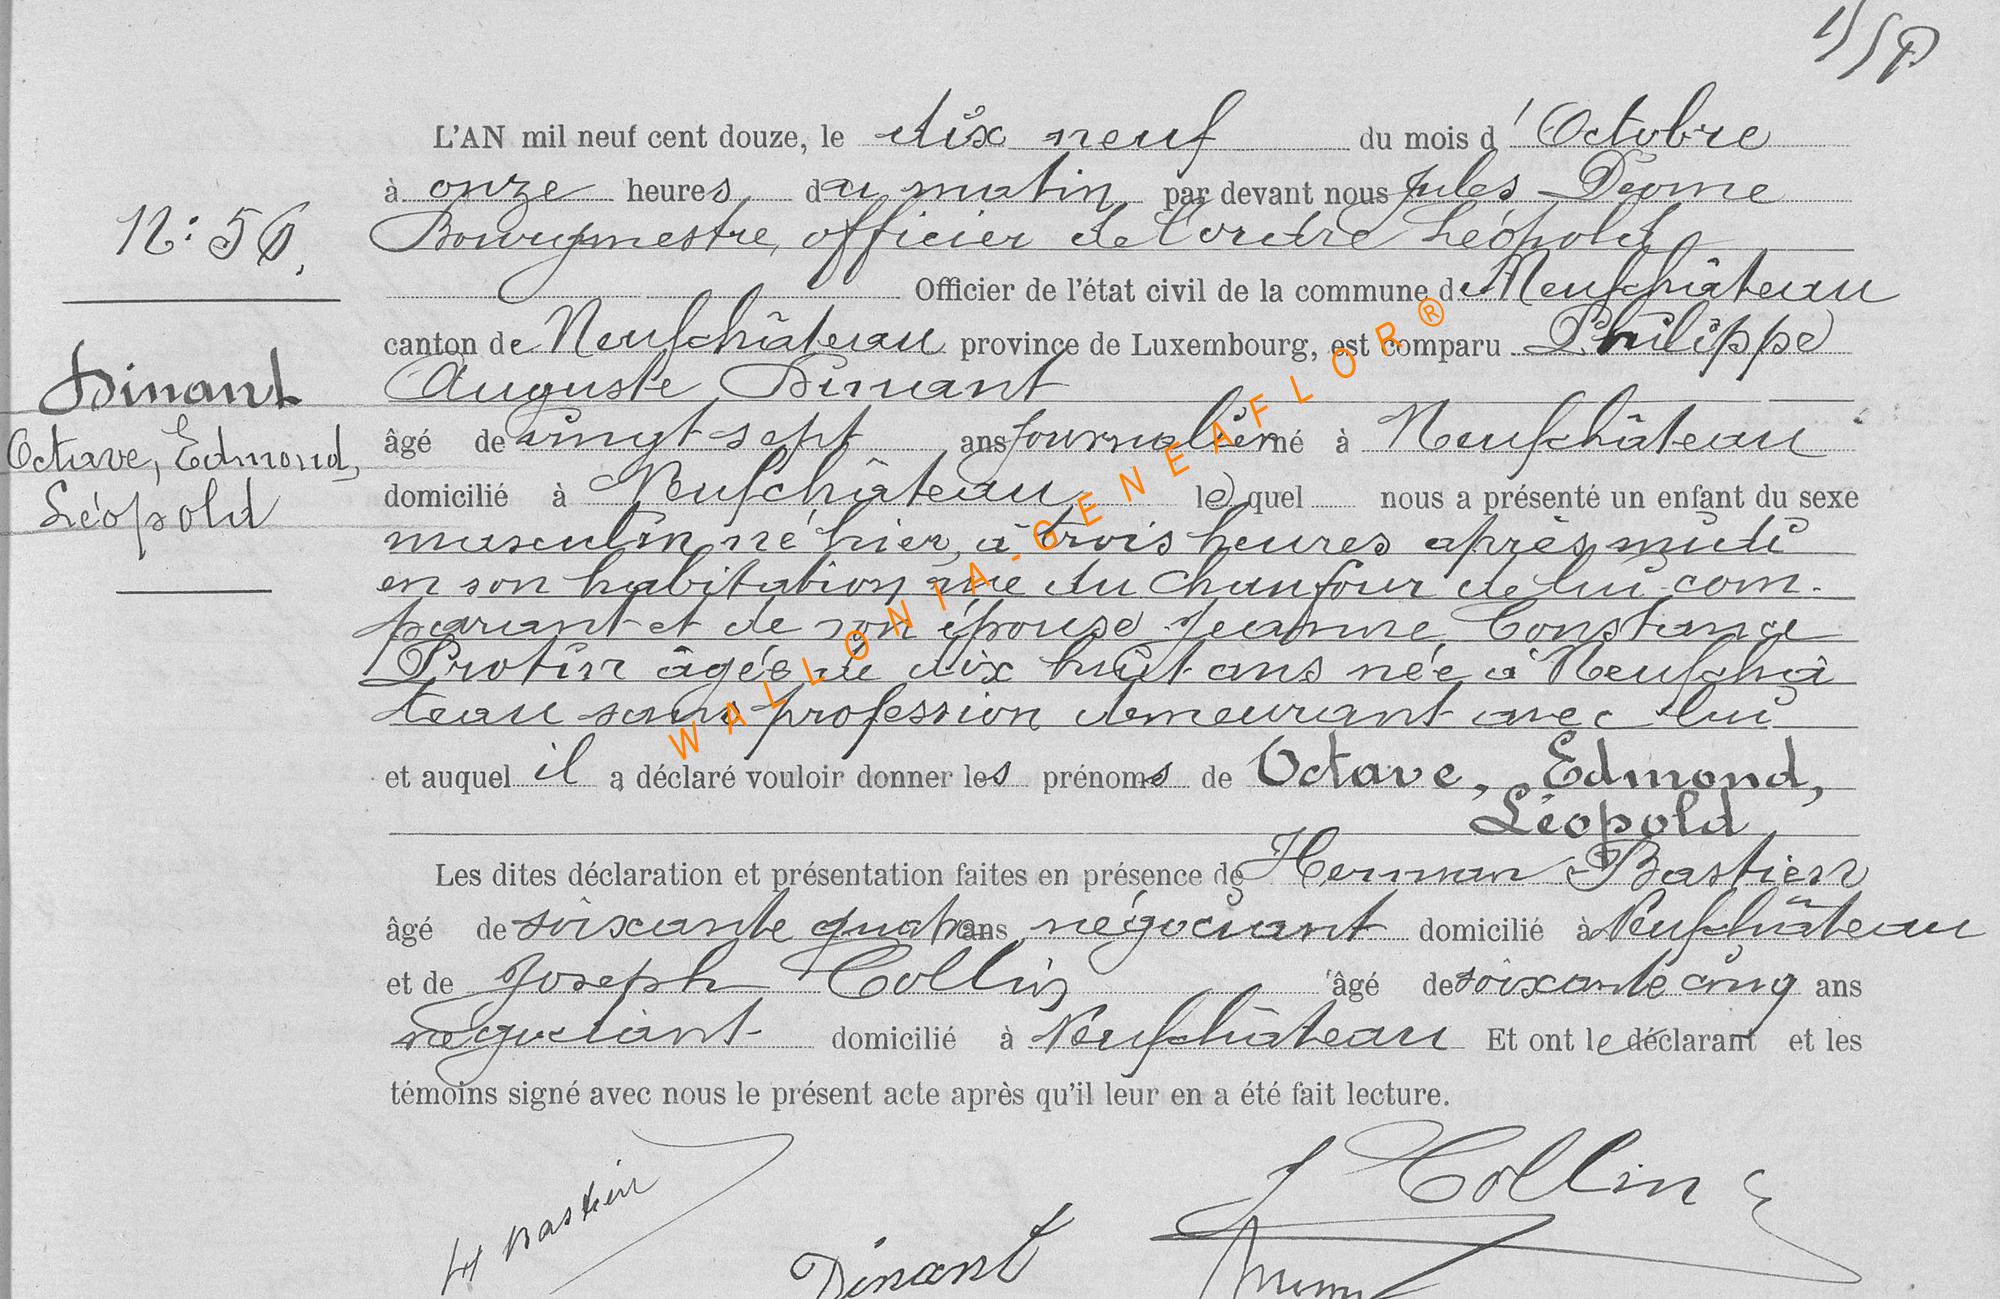 L'AN mil neuf cent douze, le dix neuf du mois d'Octobre
à onze heures du matin par devant nous Jules Deome
Bourgmestre, officier de l'ordre Léopold
N: 56.
Officier de l'état civil de la commune de Neufchâteau
canton de Neufchâteau province de Luxembourg, est comparu Philippe
Auguste Dinant
Dinant
Octave, Edmond,
Léopold
âgé de vingt-sept ans journalier né à Neufchâteau
domicilié à Neufchâteau lequel nous a présenté un enfant du sexe
masculin né hier, à trois heures après midi
en son habitation rue du Chaufour de lui com-
parant et de son épouse Jeanne Constance
Protin âgée de dix huit ans née à Neufchâ
teau sans profession demeurant avec lui
et auquel il a déclaré vouloir donner les prénoms de Octave, Edmond,
Léopold
Les dites déclaration et présentation faites en présence de Herman Bastien
âgé de soixante quatre ans négociant domicilié à Neufchâteau
et de Joseph Collin âgé de soixante cinq ans
négociant domicilié à Neufchâteau Et ont le déclarant et les
témoins signé avec nous le présent acte après qu'il leur en a été fait lecture.
H Bastien
Dinant
J Collin
WALLONIA-GENEAFLOR®